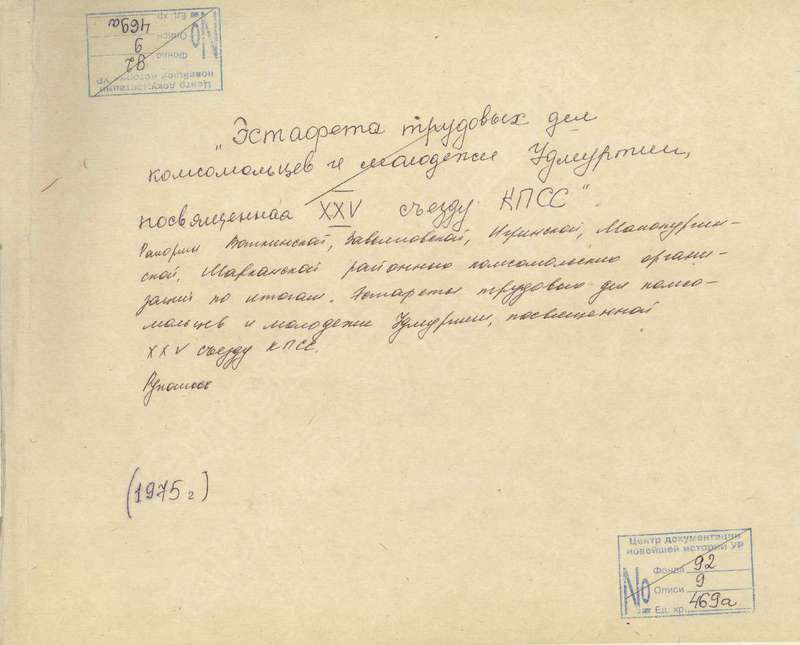 Центр документации
новейшей истории УР
Фонда 92
Описи 9
№ Ед. хр. 469а
"Эстафета трудовых дел
комсомольцев и молодежи Удмуртии,
посвященная XXV съезду КПСС".
Рапорты Воткинской, Завьяловской, Игринской, Малопургин-
ской, Можгинской районных комсомольских органи-
заций по итогам Эстафеты трудовых дел комсо-
мольцев и молодежи Удмуртии, посвященной
XXV съезду КПСС.
Рукопись
(1975 г)
Центр документации
новейшей истории УР
Фонда 92
Описи 9
№ Ед. хр. 469а